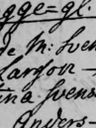 gge=gl.
de In: Sven
Larsson –
ina Svens
Anders-